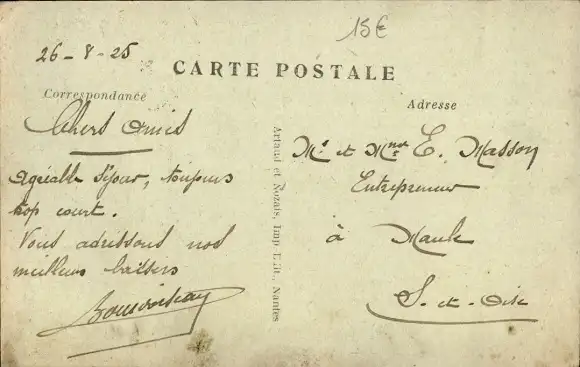 15€
26-8-25
CARTE POSTALE
Correspondance
Adresse
Chers Amis
Agréable séjour, toujours
trop court.
Vous adressons nos
meilleurs baisers
Mr et Mme E. Masson
Entrepreneur
à Maule
S.-et-Oise
Artaud et Nozais, Imp.-Edit., Nantes